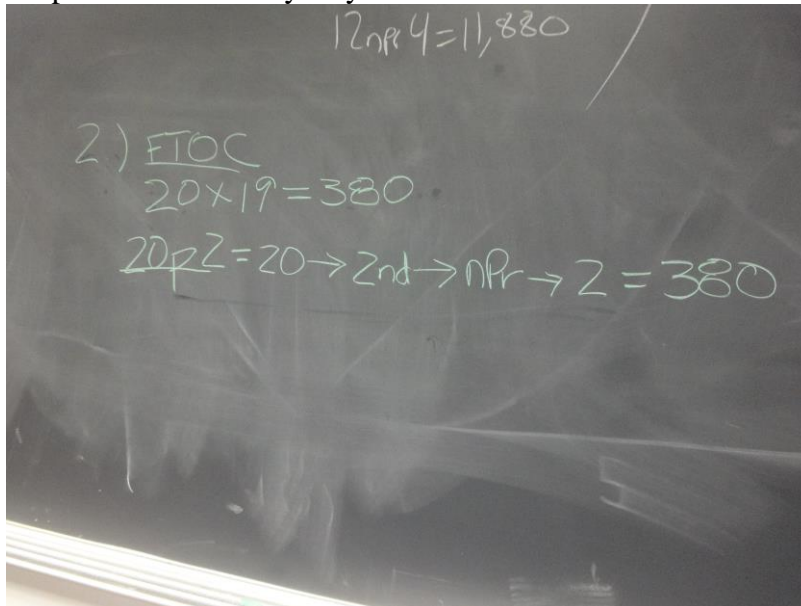 12npr4=11,880
2) FTOC
20×19=380
20p2=20→2nd→nPr→2=380